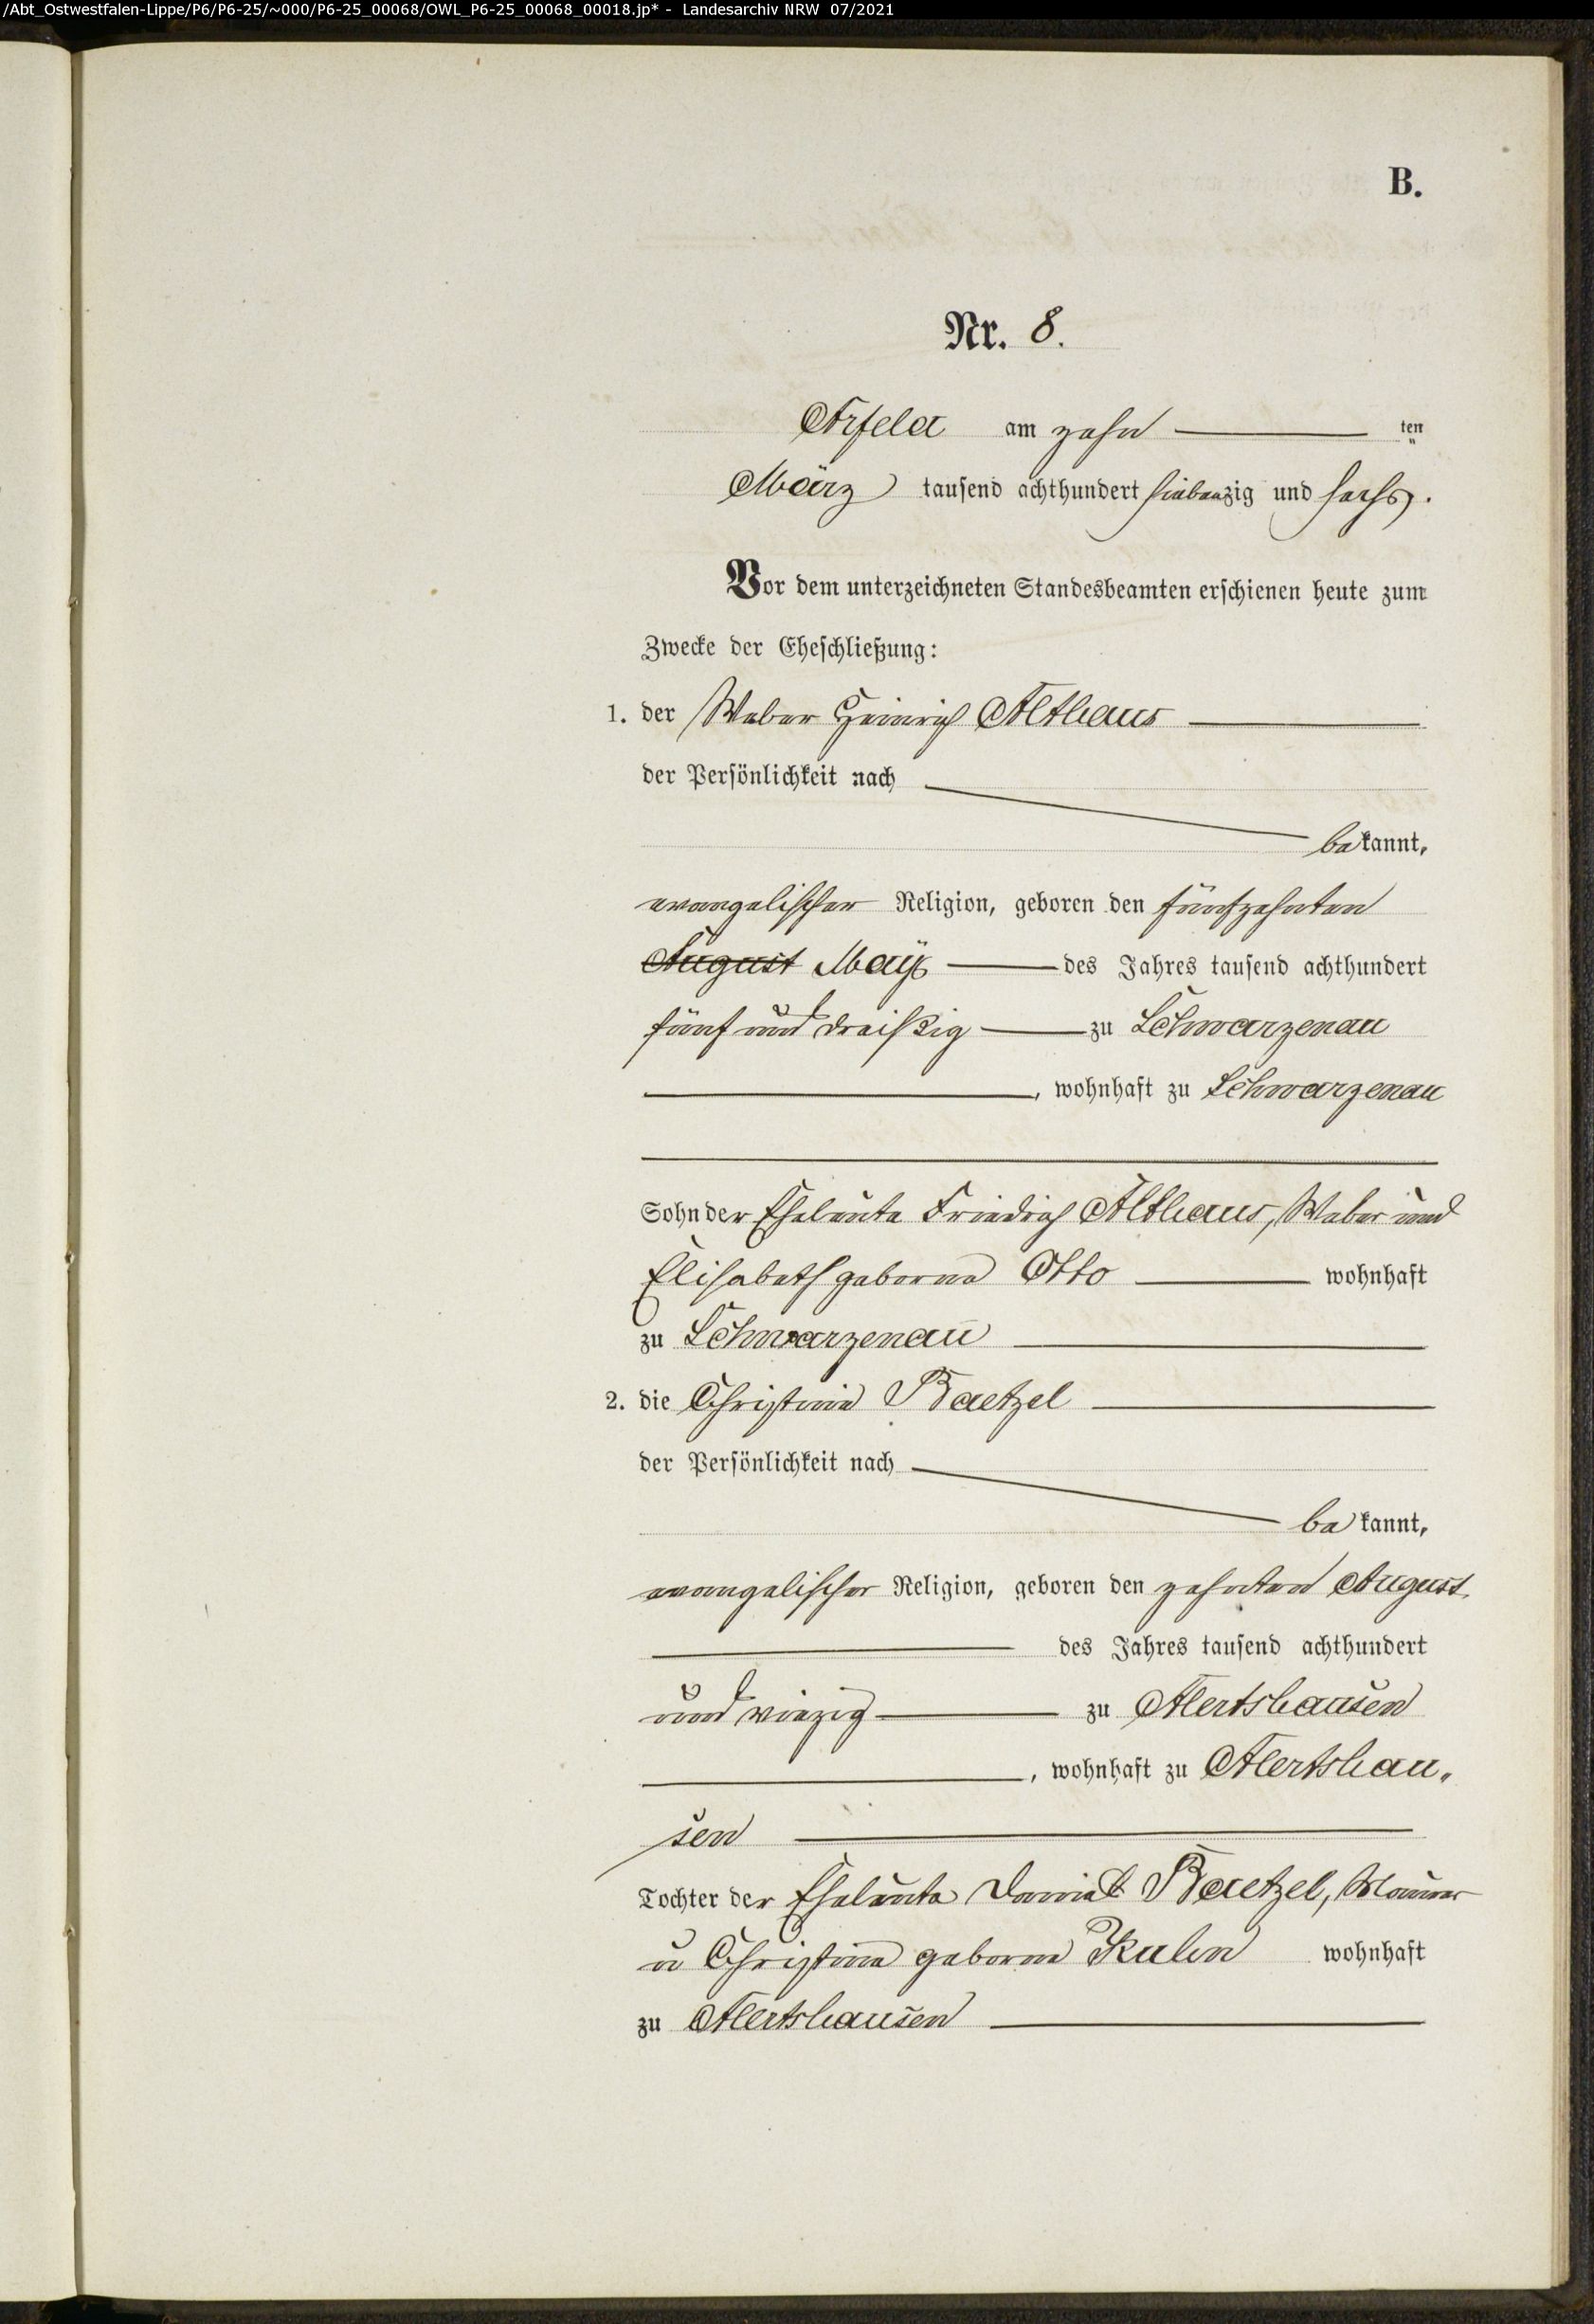 /Abt_Ostwestfalen-Lippe/P6/P6-25/~000/P6-25_00068/OWL_P6-25_00068_00018.jp* - Landesarchiv NRW 07/2021
B.
Nr. 8.
Arfeld am zehn ten
März tausend achthundert siebenzig und sechs.
Vor dem unterzeichneten Standesbeamten erschienen heute zum
Zwecke der Eheschließung:
1. der Weber Heinrich Althaus
der Persönlichkeit nach
bekannt,
evangelischer Religion, geboren den fünfzehnten
August May des Jahres tausend achthundert
fünf und dreißig zu Schwarzenau
, wohnhaft zu Schwarzenau
Sohn der Eheleute Friedrich Althaus, Weber und
Elisabeth geborne Otto wohnhaft
zu Schwarzenau
2. die Christine Baetzel
der Persönlichkeit nach
bekannt,
evangelischer Religion, geboren den zehnten August
des Jahres tausend achthundert
und vierzig zu Alertshausen
, wohnhaft zu Alertshau-
sen
Tochter der Eheleute Daniel Baetzel, Maurer
u Christine geborne Kuhn wohnhaft
zu Alertshausen